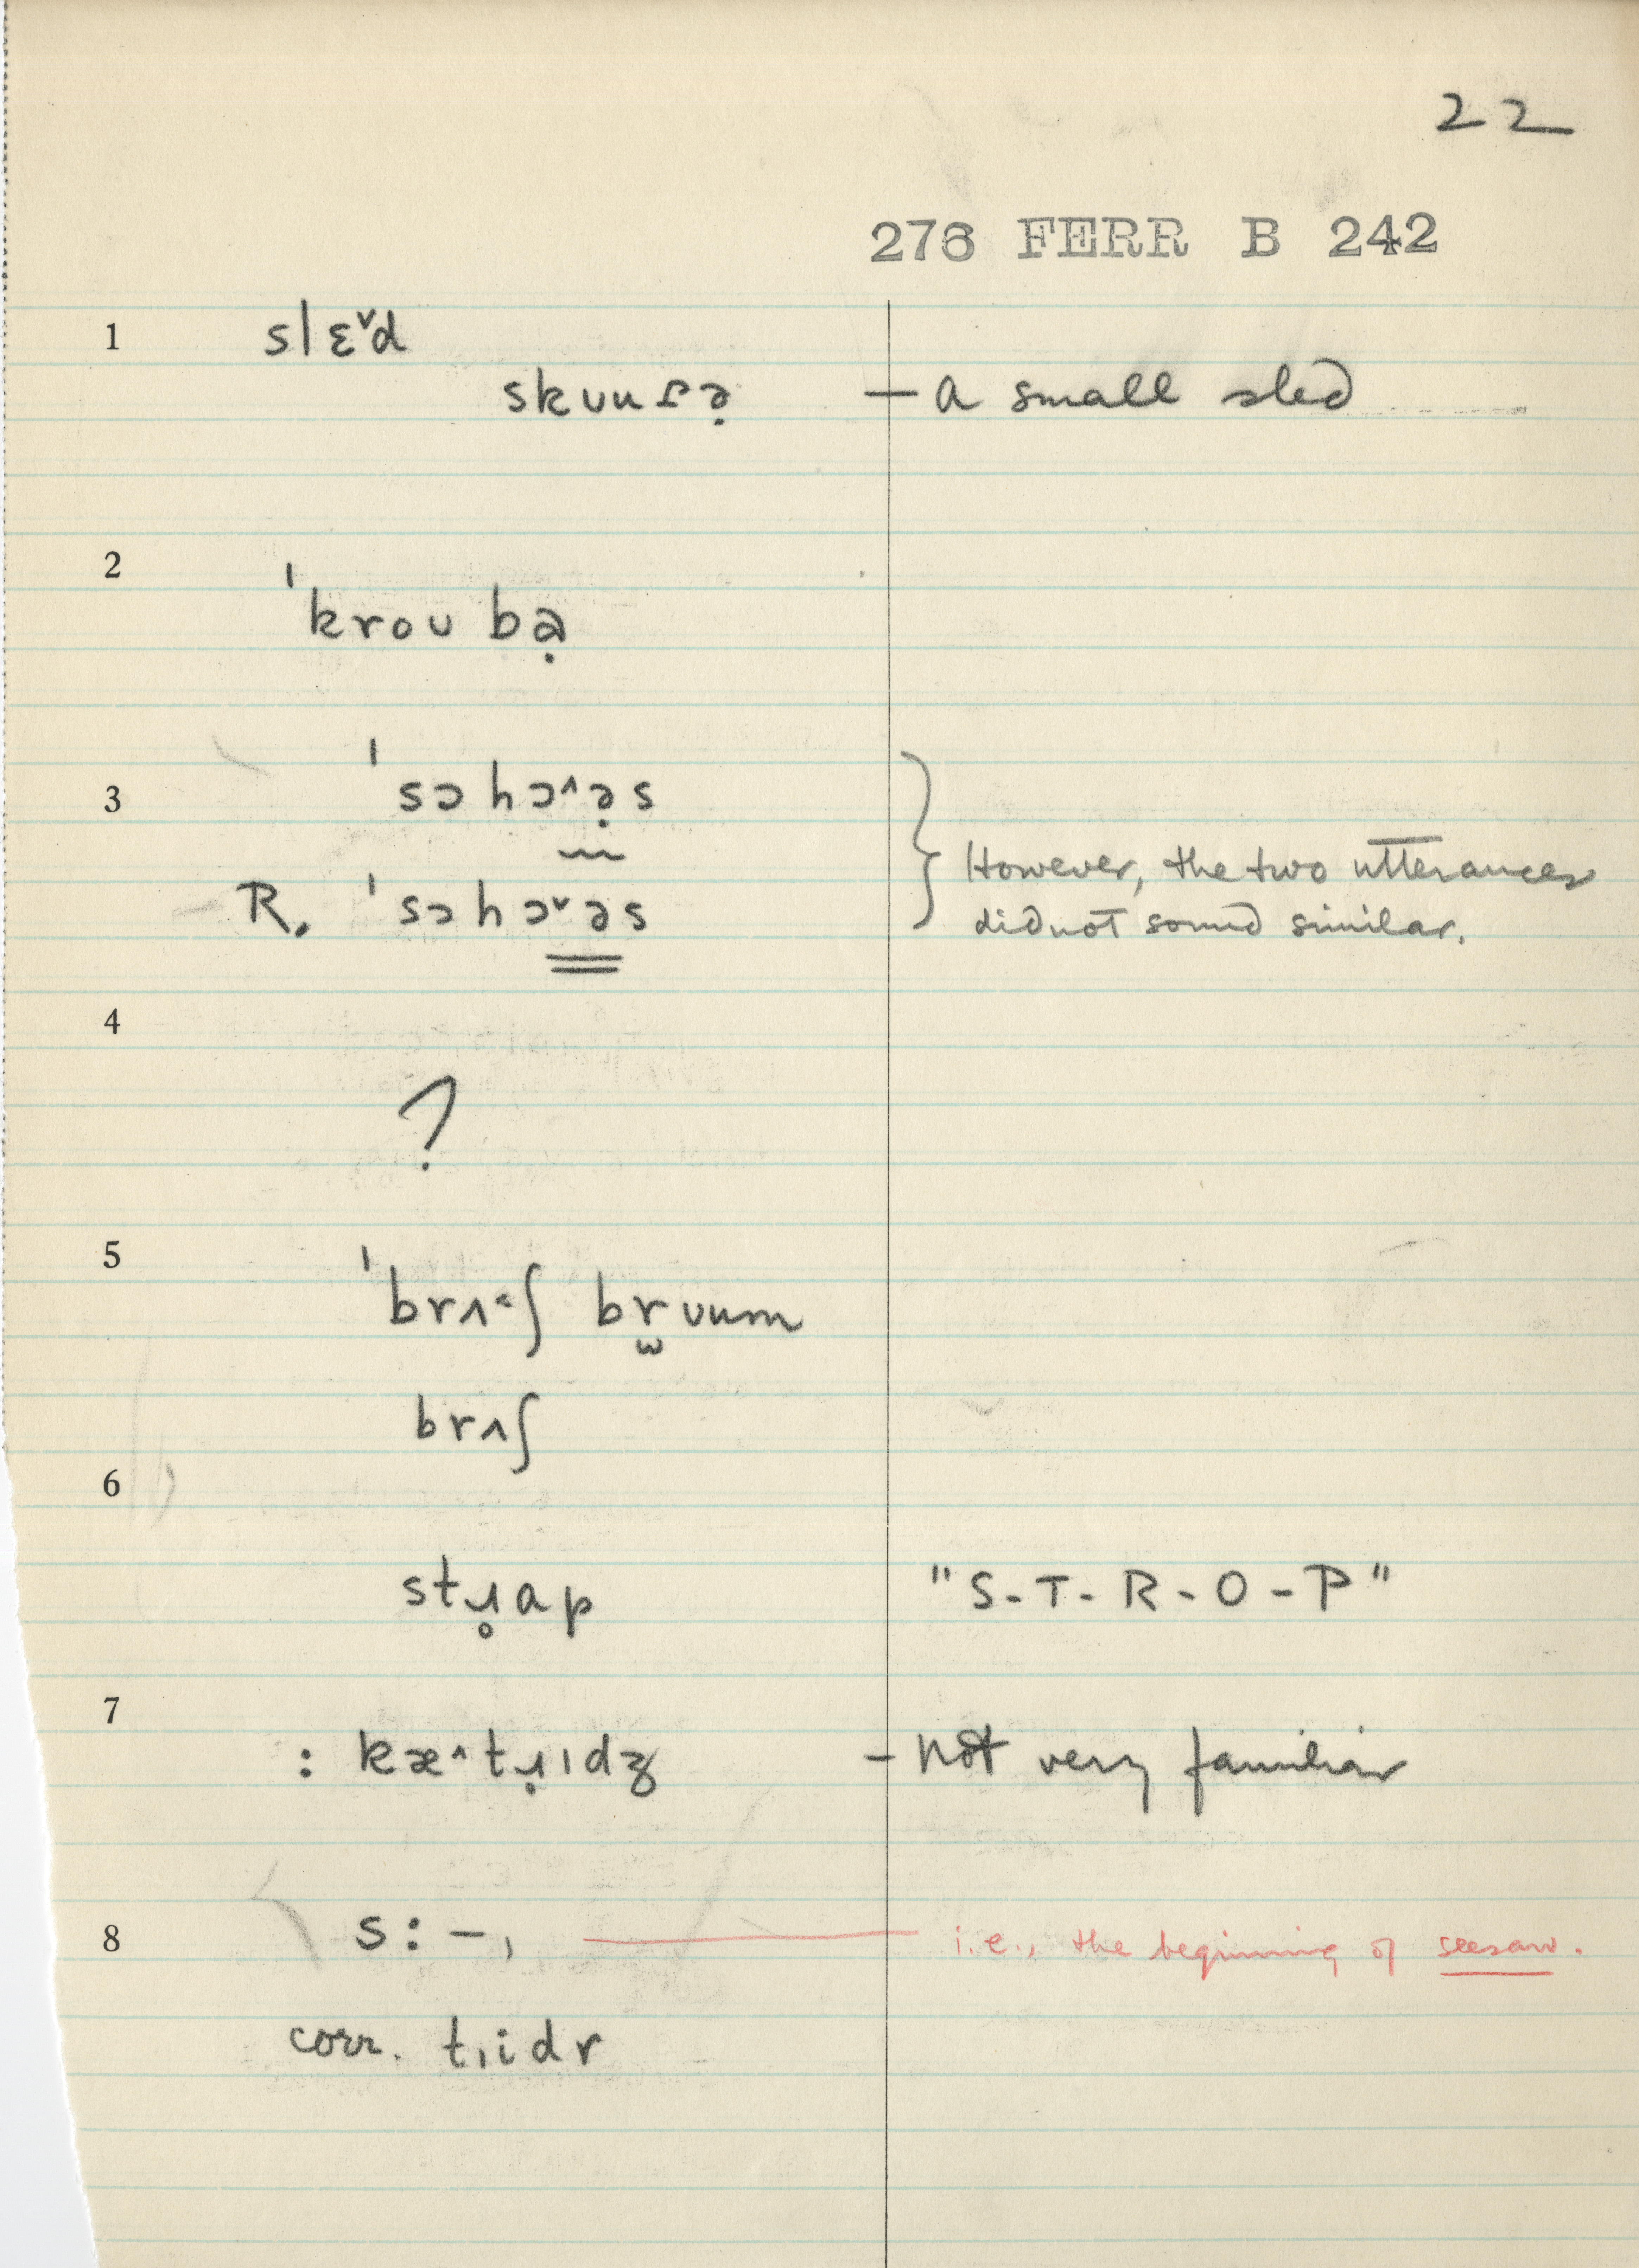 22
276 FERR B 242
1 slɛ˅d
skʊuɾə̣ — a small sled
2 ˈkroʊ bə̣
3 ˈsɔ hɔ˄ə̣s
R. ˈsɔ hɔ˅əs
However, the two utterances
did not sound similar.
4
?
5 ˈbrʌ˂ʃ br̫ʊum
brʌʃ
6
stɹ̥ap "S-T-R-O-P"
7
: kæ˄tɹ̣ɪdʒ – not very familiar
8 s:–, i.e., the beginning of seesaw.
corr. tɪidr